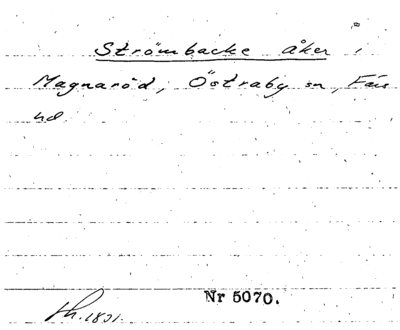 Strömbacke åker i
Magnaröd, Östraby sn, Färs
hd.
Nr 5070.
sk. 1831.